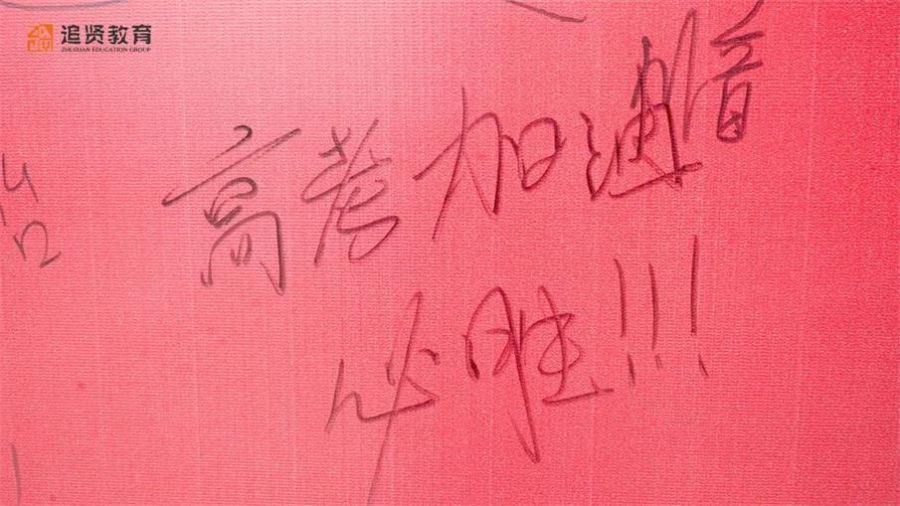 追贤教育
ZHUIXIAN EDUCATION GROUP
高考加
必胜!!!